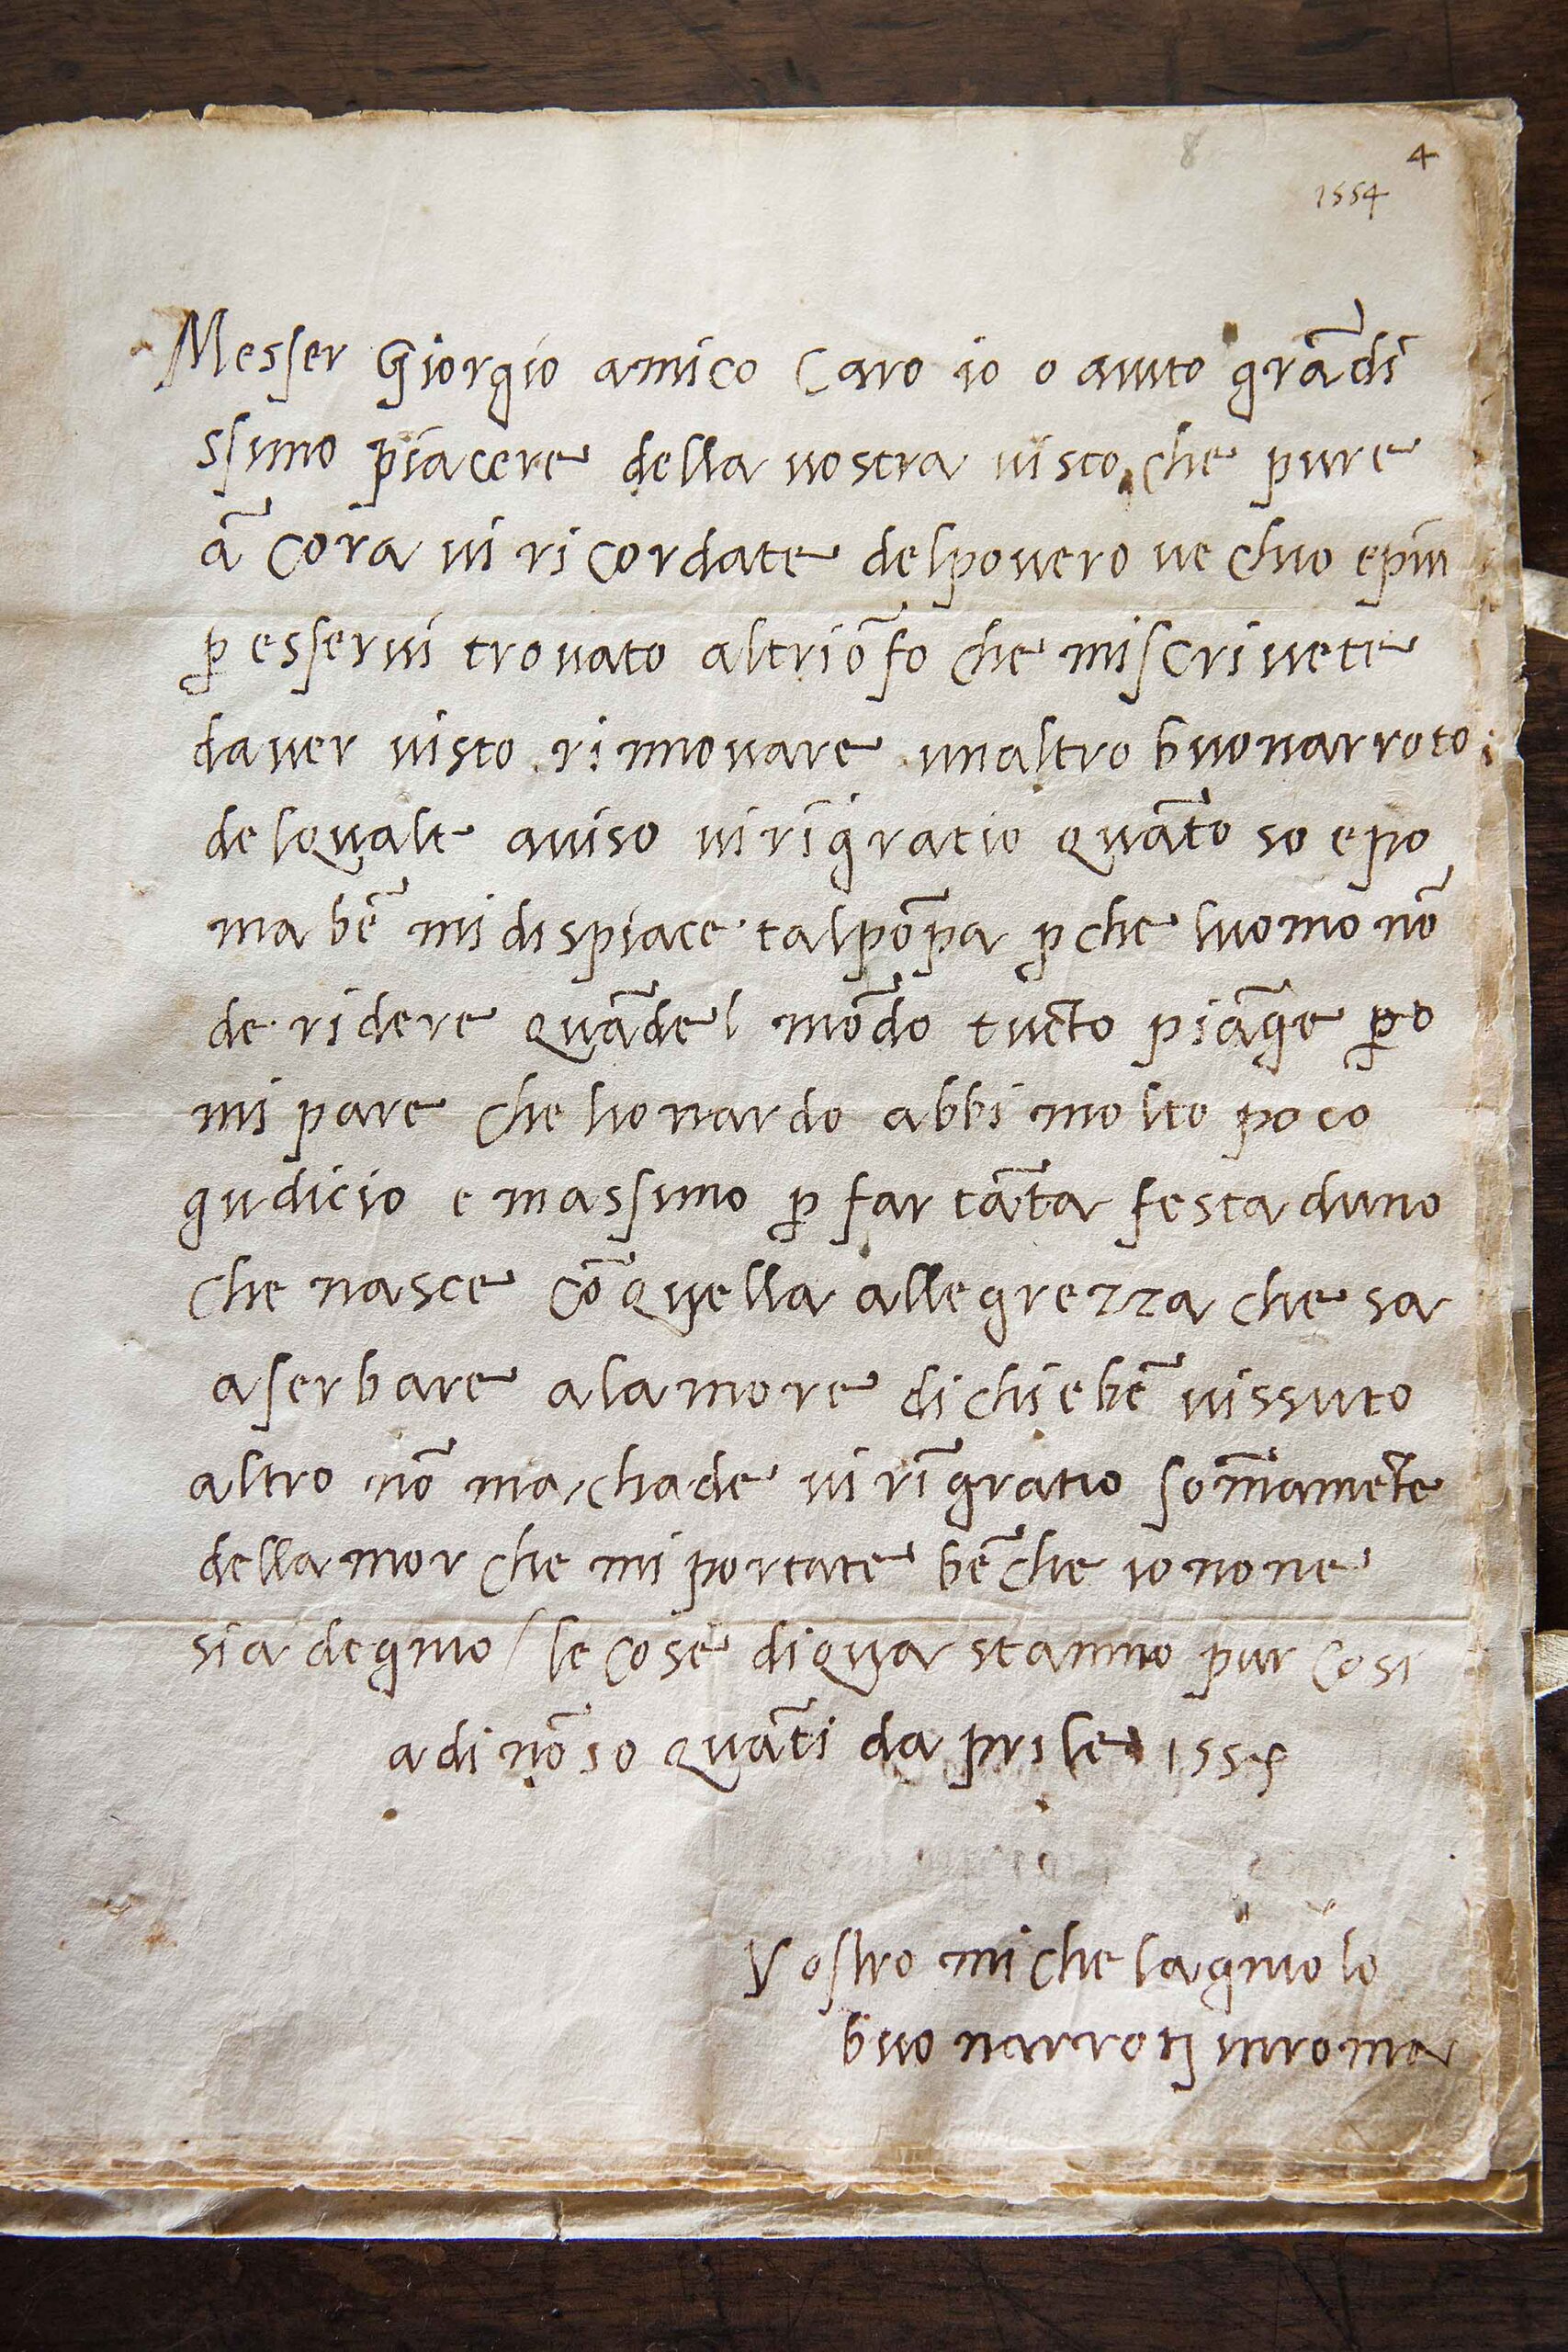 8
4
1554
Messer Giorgio amico Caro io o auuto grādi
ssimo piacere della uostra uisto che pure
ā cora ui ricordate delpouero uechio epiu
p̱ esserui trouato altriōfo che miscriuete
dauer uisto rinnouare unaltro buonarroto
delquale auiso uirīgratio quāto so epo
ma bē mi dispiace talpōpa p̱che luomo nō
de ridere quādel mōdo tucto piāge p̱o
mi pare che lionardo abbi molto poco
gudicio e massimo p̱ far tāta festa duno
che nasce cō quella allegrezza che sa
aserbare alamore di chi e bē uissuto
altro nō ma chade ui rīgratio som̄amēte
dellamor che mi portate bēche io none
sia degnio / le cose diqua stanno pur cosi
adi nō so quāti daprile 1554
Vostro michelagniolo
buonarroti inroma